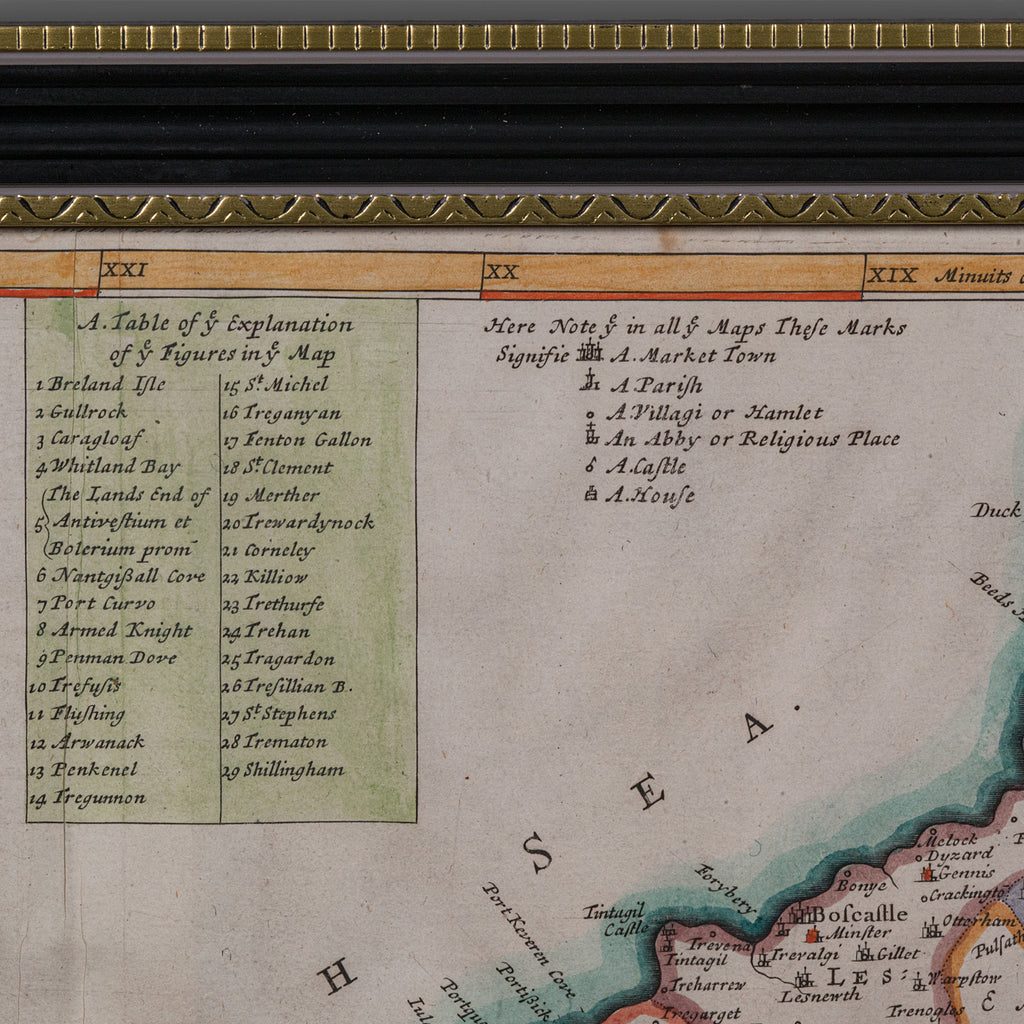 XXI
XX
XIX Minuits
A. Table of yͤ Explanation
of yͤ Figures in yͤ Map
1 Breland Iſle
2 Gullrock
3 Caragloaf
4 Whitland Bay
5 The Lands End of
Antiveſtium et
Bolerium prom̄
6 Nantgißall Cove
7 Port Curvo
8 Armed Knight
9 Penman Dove
10 Trefuſis
11 Fluſhing
12 Arwanack
13 Penkenel
14 Tregunnon
15 Sᵗ. Michel
16 Treganyan
17 Fenton Gallon
18 Sᵗ. Clement
19 Merther
20 Trewardynock
21 Corneley
22 Killiow
23 Trethurfe
24 Trehan
25 Tragardon
26 Treſillian B.
27 Sᵗ. Stephens
28 Trematon
29 Shillingham
Here Note yͤ in all yͤ Maps Theſe Marks
Signifie A. Market Town
A Pariſh
A. Villagi or Hamlet
An Abby or Religious Place
A. Caſtle
A. Houſe
Duck
Beeds
H
S E A.
Melock
Dyzard
Gennis
Crackingto
Bonye
Forybery
Boſcaſtle
Minſter
Otterham
Tintagil
Caſtle
Port Keveren Cove
Trevena
Tintagil
Trevalgi
Gillet
LES:
Lesnewth
Warpſtow
Treharrew
Portißick
Tregarget
Trenogles
E